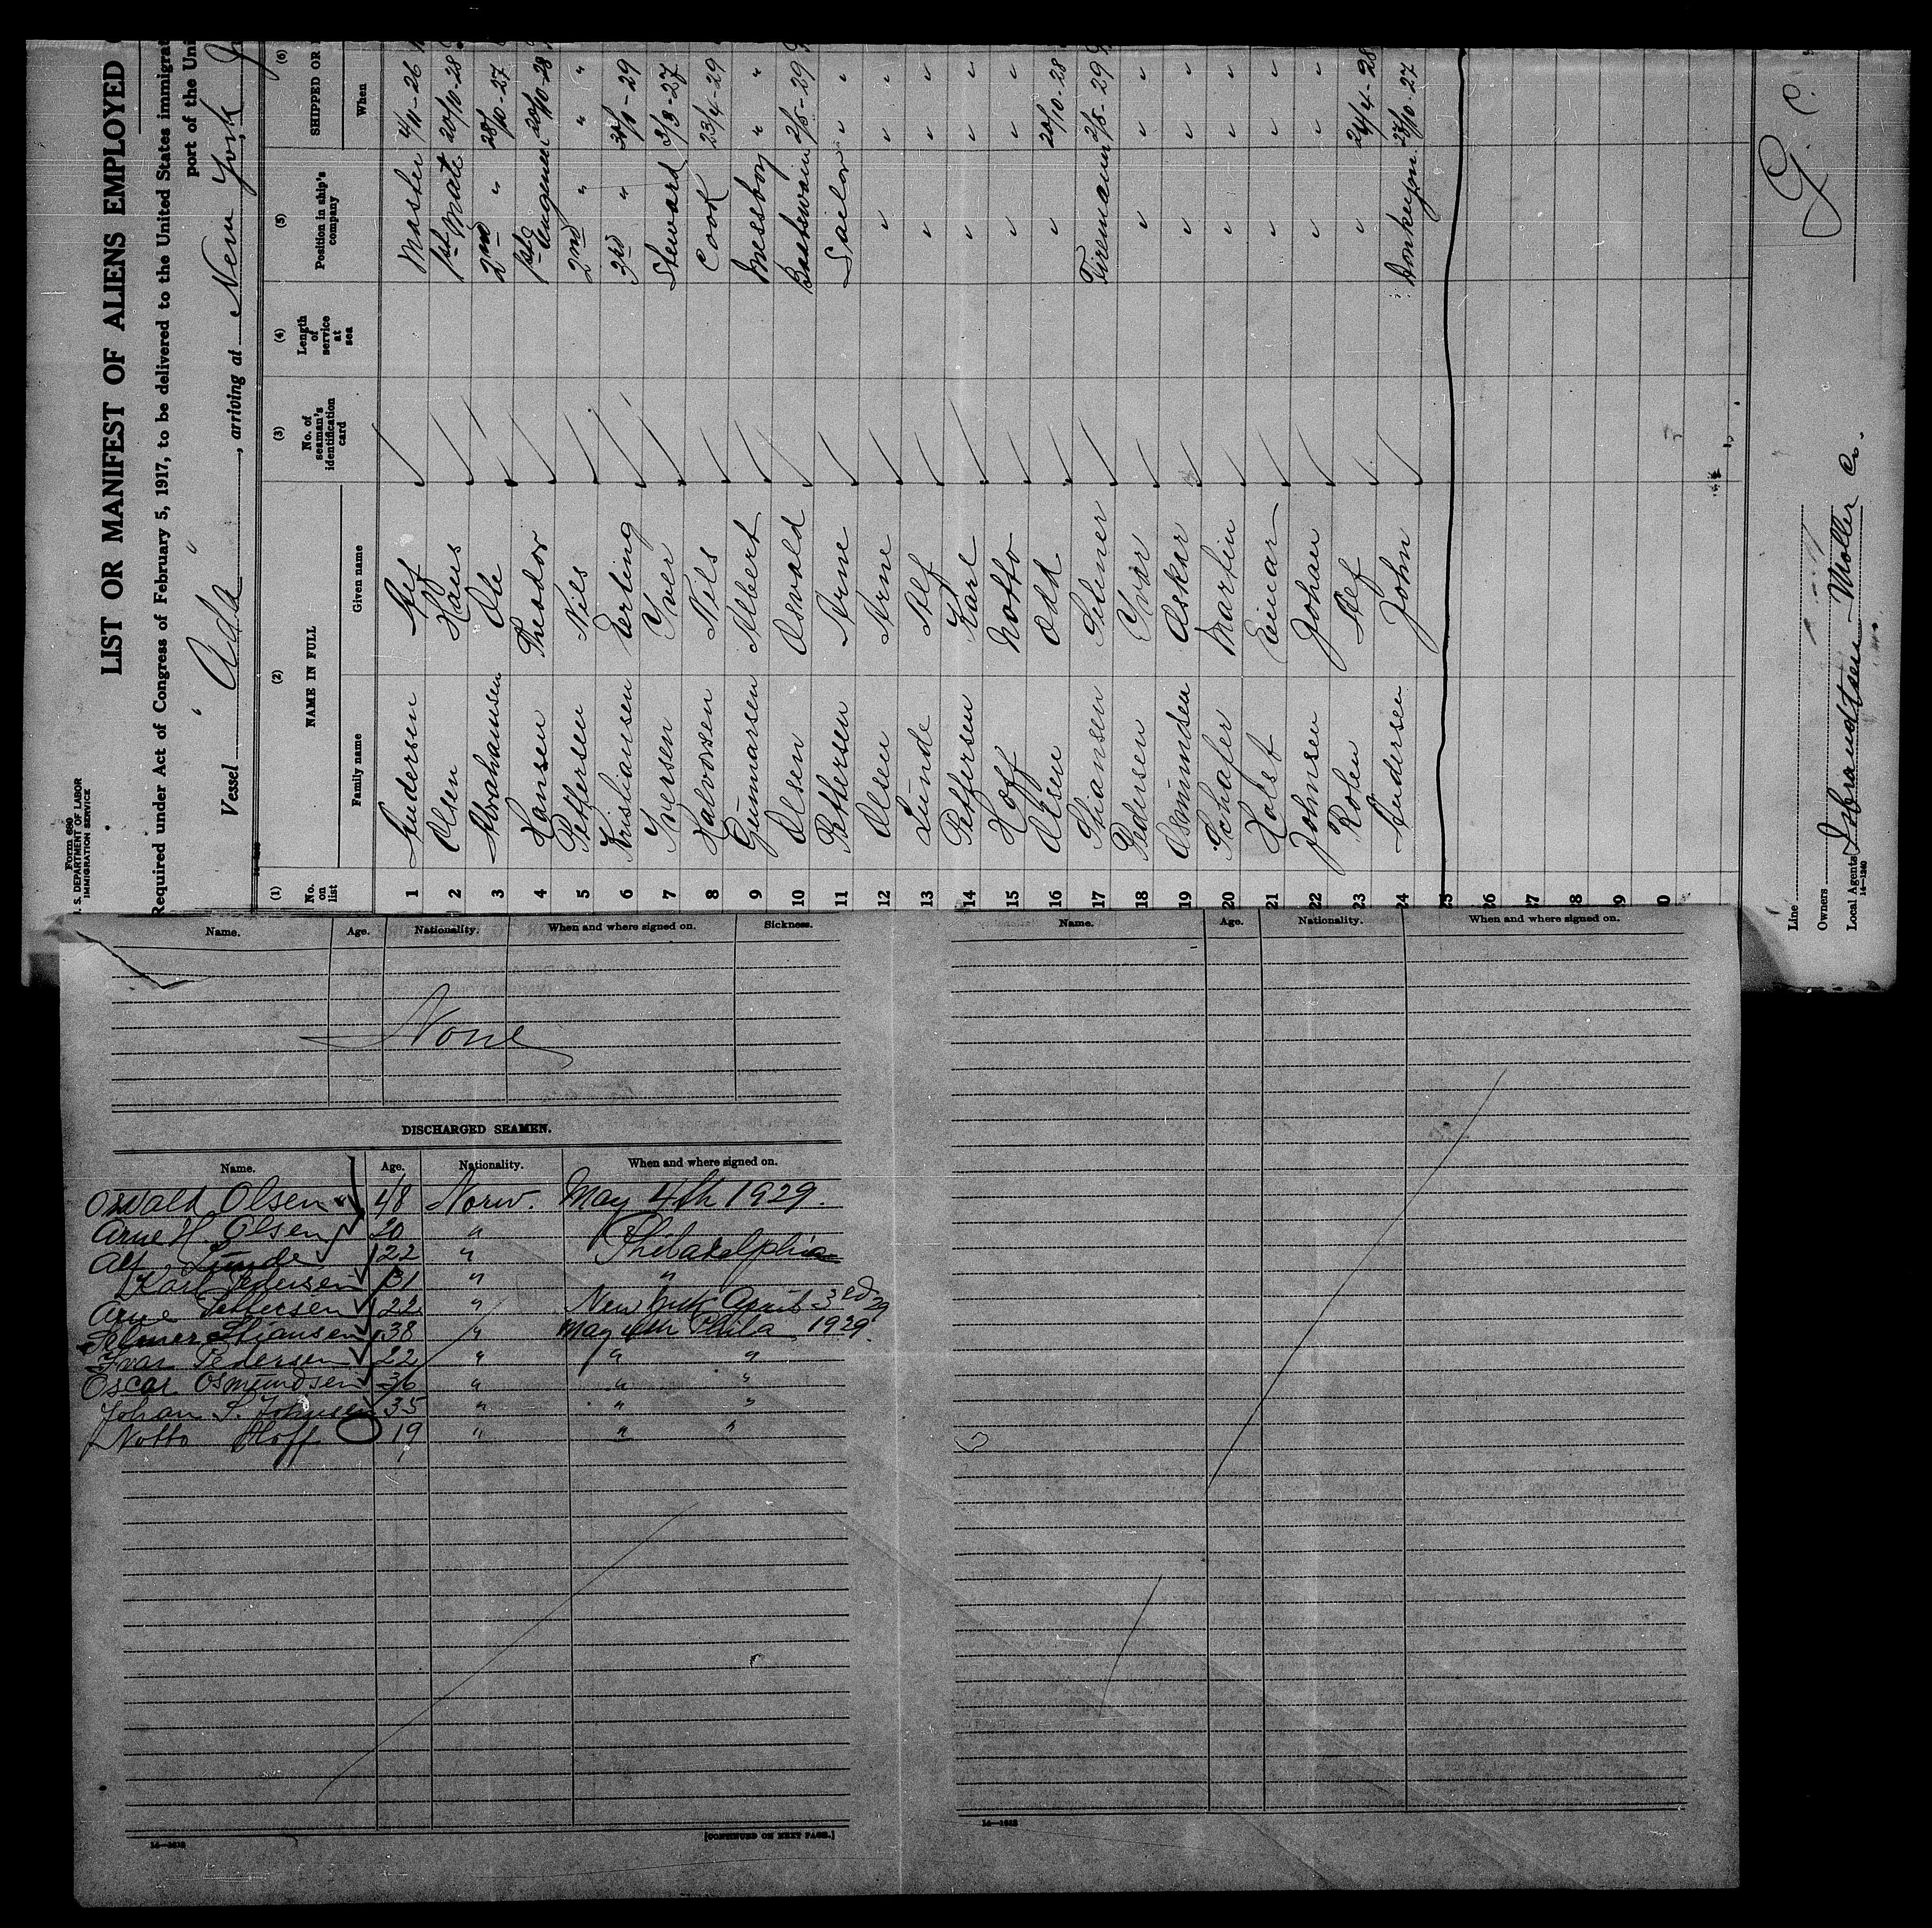 Form 680
U. S. DEPARTMENT OF LABOR
IMMIGRATION SERVICE
LIST OR MANIFEST OF ALIENS EMPLOYED
Required under Act of Congress of February 5, 1917, to be delivered to the United States immigrat
port of the Uni
Vessel " Ada " , arriving at New York
(1) (2) (3) (4) (5) (6)
No. on list NAME IN FULL No. of seaman's identification card Length of service at sea Position in ship's company SHIPPED OR
Family name Given name When
1 Andersen Alf Master 4/11-26
2 Olsen Hans 1st Mate 20/10-28
3 Abrahamsen Ole 2nd " 28/10-27
4 Hansen Theodor 1st Engeneer 20/10-28
5 Pettersen Nils 2nd " " "
6 Kristiansen Erling 3rd " -29
7 Iversen Yver Steward 3/3-27
8 Halvorsen Nils Cook 23/4-29
9 Gunnarsen Albert Messboy " "
10 Olsen Osvald Boatswain 2/5-29
11 Pettersen Arne Sailor " "
12 Olsen Arne " " "
13 Lunde Alf " " "
14 Pettersen Karl " " "
15 Hoff Notto " " "
16 Olsen Odd " 20/10-28
17 Stiansen Selmer Firemann 2/5-29
18 Pedersen Yvar " " "
19 Osmundsen Oskar " " "
20 Schafer Martin " " "
21 Holst Einar " " "
22 Johnsen Johan " " "
23 Rosen Alf " 24/4-28
24 Andersen John Donkeym. 27/10-27
25
26
27
28
29
30
Line
Owners
Local Agents Isbrandtsen-Moller Co.
14—1240
Name. Age. Nationality. When and where signed on. Sickness.
None
DISCHARGED SEAMEN.
Name. Age. Nationality. When and where signed on.
Osvald Olsen 48 Norw. May 4th 1929.
Arne H. Olsen 20 "
Alf Lunde 22 " Philadelphia
Karl Pedersen 31 " "
Arne Pettersen 22 " New York April 3rd 29
Selmer Stiansen 38 " May 4th Phila 1929.
Ivar Pedersen 22 " " "
Oscar Osmundsen 36 " " "
Johan S. Johnsen 35 " " "
Notto Hoff 19 " " "
14—1612
[CONTINUED ON NEXT PAGE.]
Name. Age. Nationality. When and where signed on.
14—1612